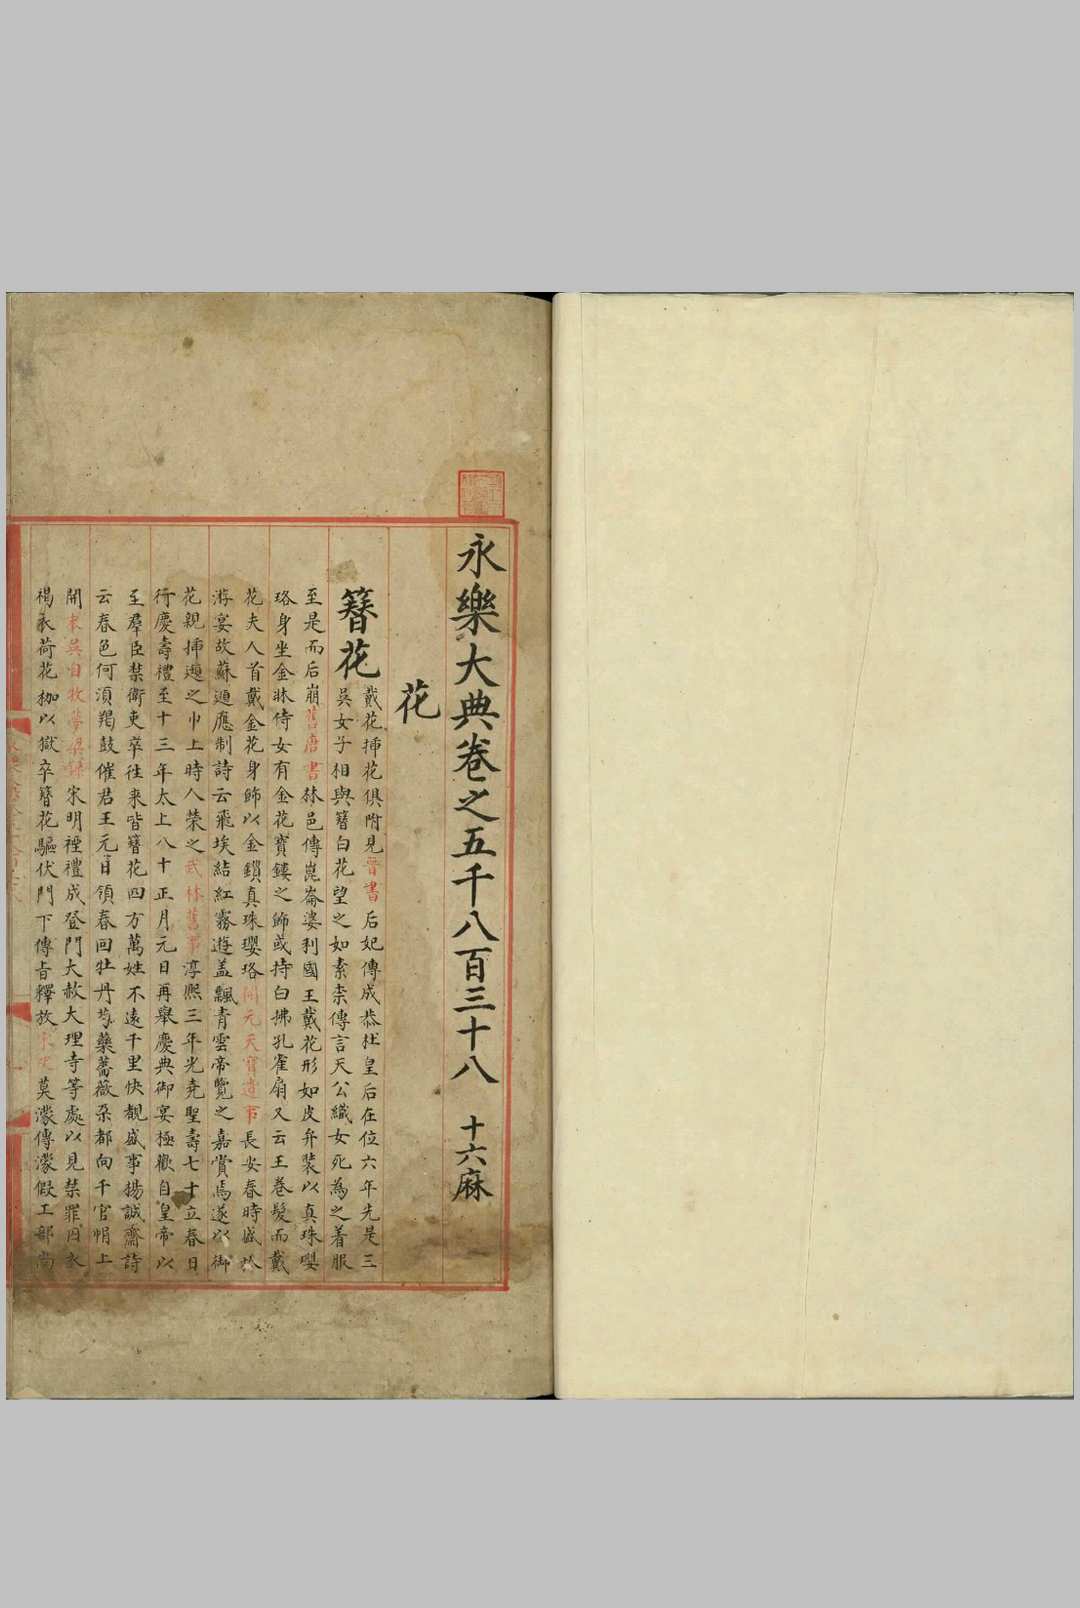 永樂大典卷之五千八百三十八 十六麻
花
簪花
戴花插花俱附見晉書后妃傳成恭杜皇后在位六年先是三
吳女子相與簪白花望之如素柰傳言天公織女死為之着服
至是而后崩舊唐書林邑傳崑崙婆利國王戴花形如皮弁裝以真珠瓔
珞身坐金牀侍女有金花寶鏤之飾或持白拂孔雀扇又云王卷髮而戴
花夫人首戴金花身飾以金鎖真珠瓔珞開元天寶遺事長安春時盛於
游宴故蘇頲應制詩云飛埃結紅霧遊盖飄青雲帝覽之嘉賞焉遂以御
花親插頲之巾上時人榮之武林舊事淳熙三年光堯聖壽七十立春日
行慶壽禮至十三年太上八十正月元日再舉慶典御宴極歡自皇帝以
至羣臣禁衛吏卒往来皆簪花四方萬姓不遠千里快覩盛事楊誠齋詩
云春色何湏羯鼓催君王元日領春回牡丹芍藥薔薇朵都向千官帽上
開東吳自牧夢梁錄宋明禋禮成登門大赦大理寺等處以見禁罪囚衣
褐衣荷花枷以獄卒簪花驅伏門下傳旨釋放宋史莫濛傳濛假工部尚